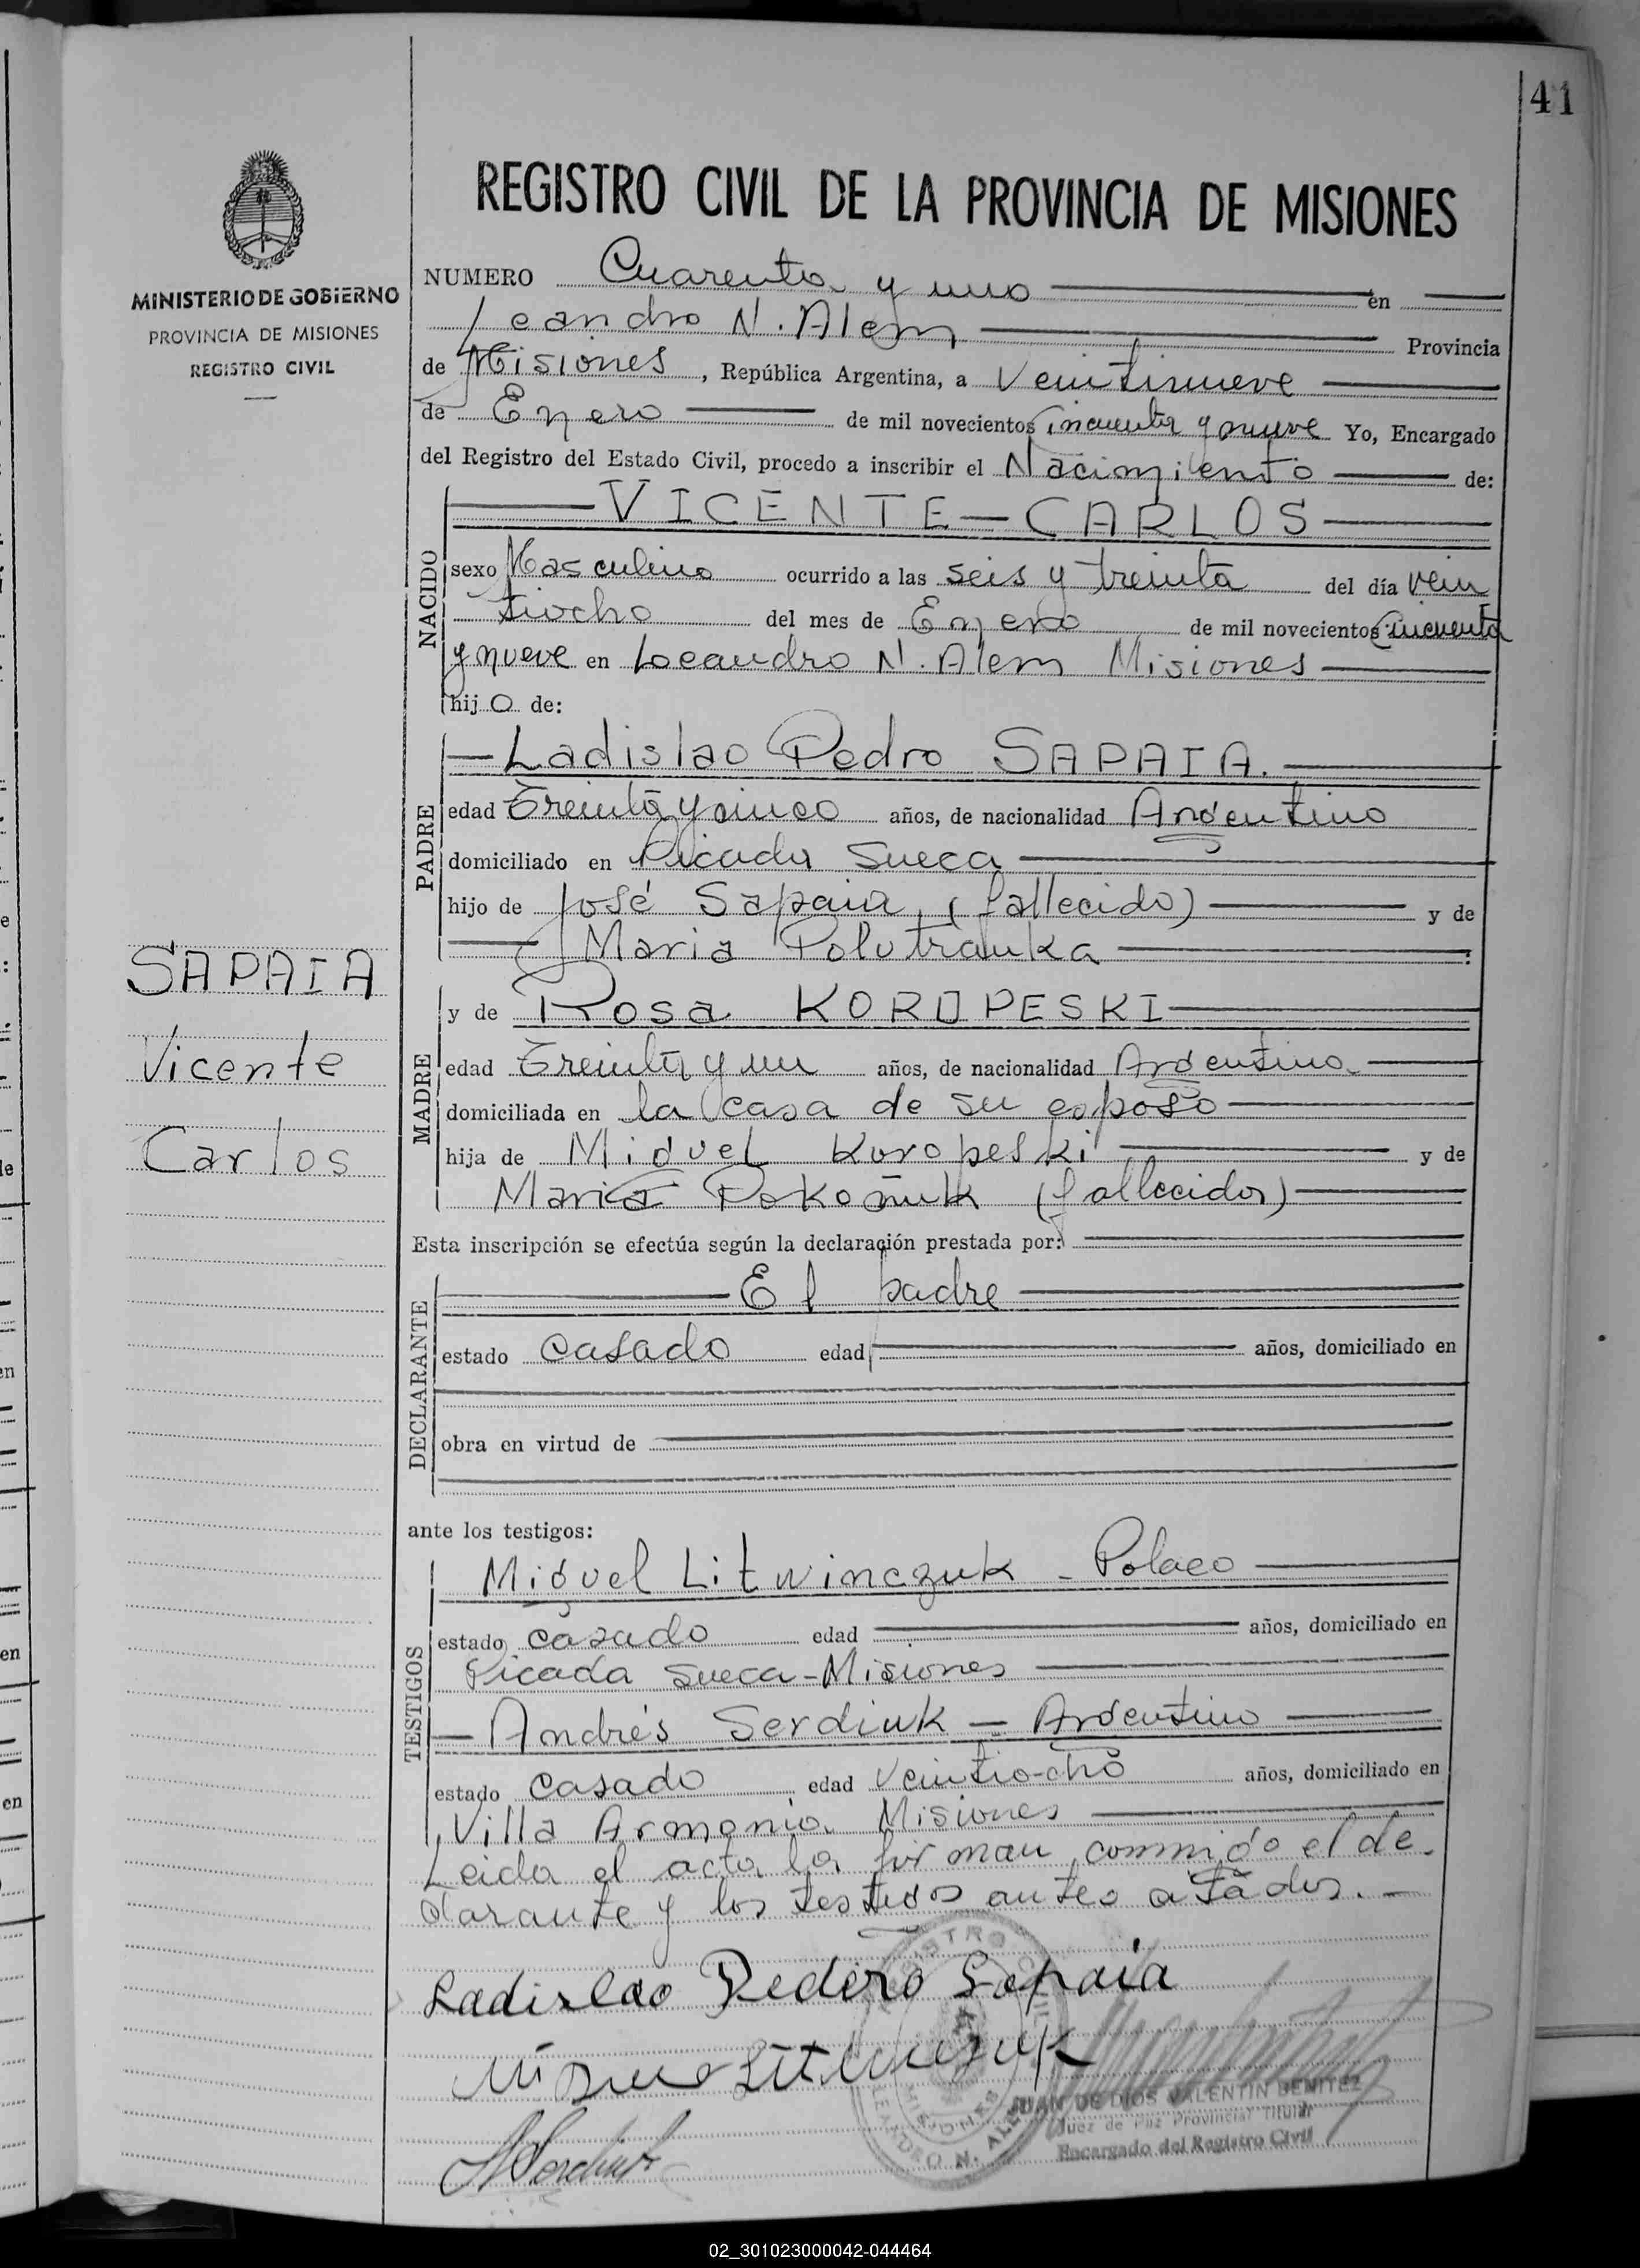 41
REGISTRO CIVIL DE LA PROVINCIA DE MISIONES
MINISTERIO DE GOBIERNO
PROVINCIA DE MISIONES
REGISTRO CIVIL
NUMERO Cuarenta y uno en
Leandro N. Alem Provincia
de Misiones, República Argentina, a Veintinueve
de Enero de mil novecientos cincuenta y nueve Yo, Encargado
del Registro del Estado Civil, procedo a inscribir el Nacimiento de:
NACIDO
VICENTE-CARLOS
sexo Masculino ocurrido a las seis y treinta del día vein
tiocho del mes de Enero de mil novecientos cincuenta
y nueve en Leandro N. Alem Misiones
hijo de:
PADRE
Ladislao Pedro SAPAIA.
edad Treinta y cinco años, de nacionalidad Argentino
domiciliado en Picada Sueca
hijo de José Sapaia (fallecido) y de
Maria Polutranka
SAPAIA
Vicente
Carlos
MADRE
y de Rosa KOROPESKI
edad Treinta y un años, de nacionalidad Argentina
domiciliada en la casa de su esposo
hija de Miguel Koropeski y de
Maria (fallecidos)
Esta inscripción se efectúa según la declaración prestada por:
DECLARANTE
El padre
estado casado edad años, domiciliado en
obra en virtud de
ante los testigos:
TESTIGOS
Miguel Litwinczuk - Polaco
estado casado edad años, domiciliado en
Picada Sueca-Misiones
Andrés Serdiuk - Argentino
estado casado edad Veintiocho años, domiciliado en
Villa Armonia Misiones
Leida el acta la firman conmigo el de-
clarante y los testigos antes citados.-
Ladislao Pedro Sapaia
REGISTRO CIVIL
MISIONES
LEANDRO N. ALEM
JUAN DE DIOS VALENTIN BENITEZ
Juez de Paz Provincial Titular
Encargado del Registro Civil
02_301023000042-044464